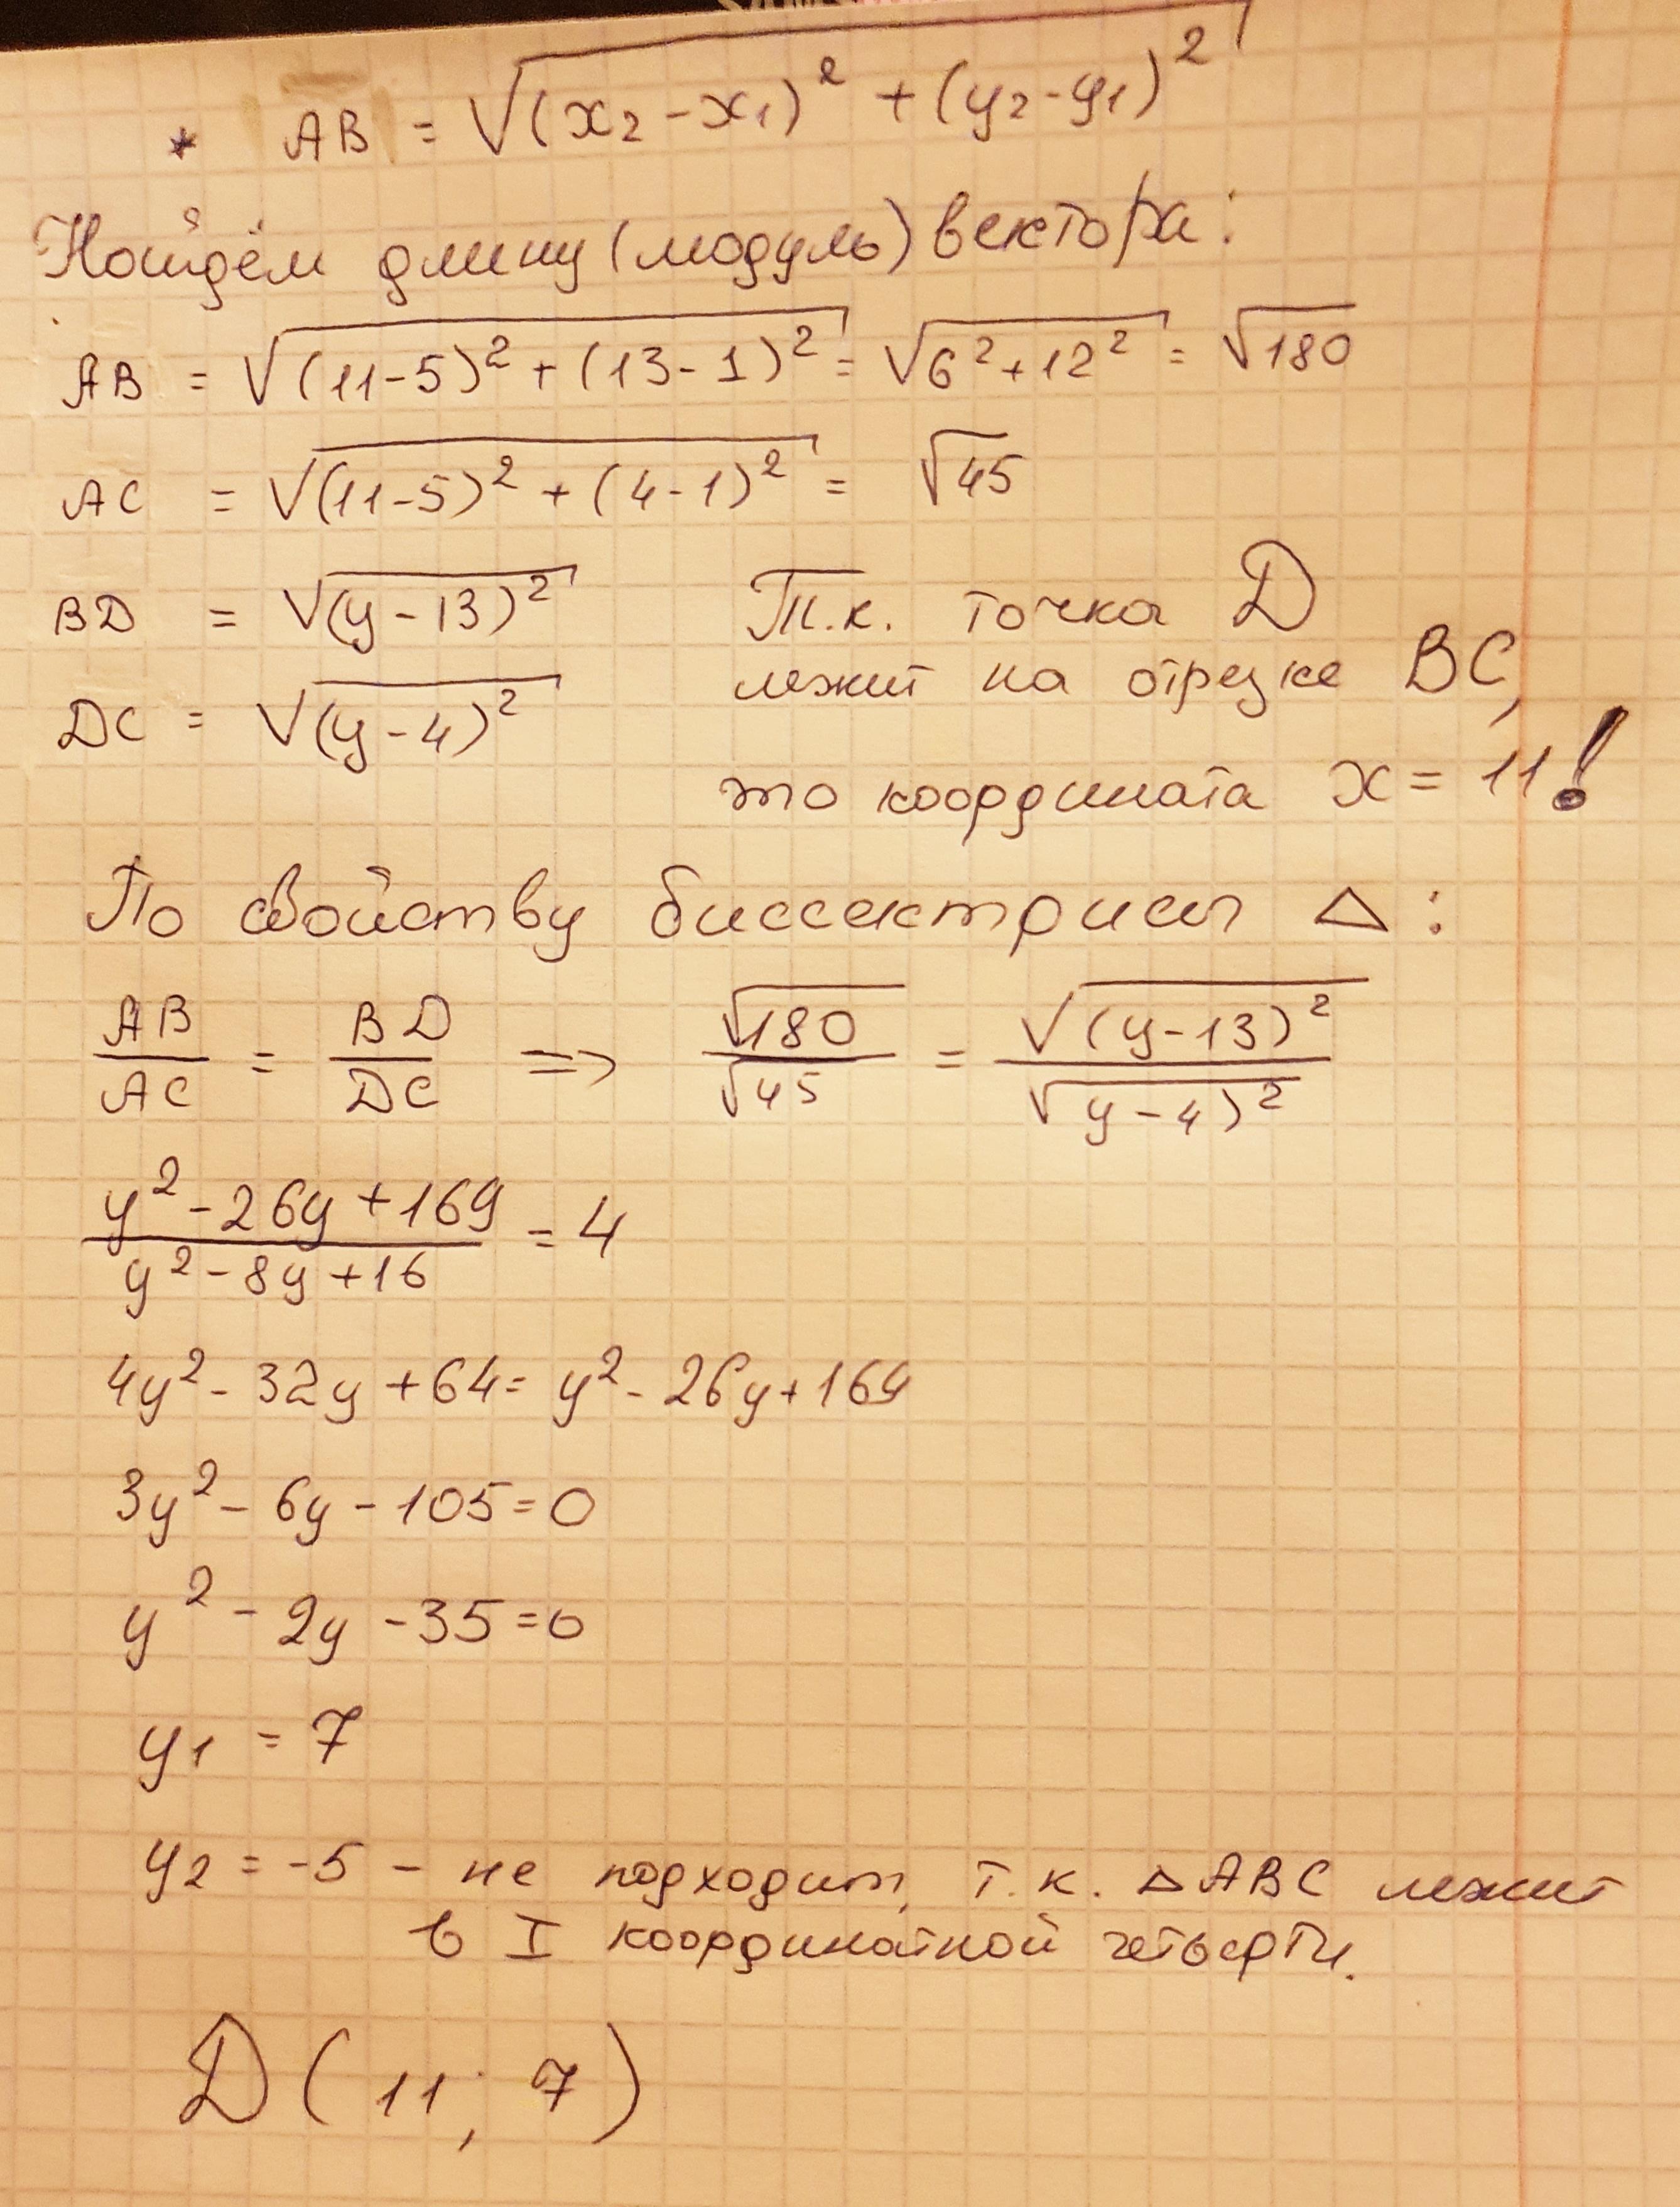 * AB = √(x₂ - x₁)² + (y₂ - y₁)²
Найдём длину (модуль) вектора:
AB = √(11-5)² + (13-1)² = √6² + 12² = √180
AC = √(11-5)² + (4-1)² = √45
BD = √(y-13)² Т.к. точка D
DC = √(y-4)² лежит на отрезке BC,
то координата x = 11!
По свойству биссектрисы △:
AB/AC = BD/DC => √180/√45 = √(y-13)²/√y-4)²
y² - 26y + 169/y² - 8y + 16 = 4
4y² - 32y + 64 = y² - 26y + 169
3y² - 6y - 105 = 0
y² - 2y - 35 = 0
y₁ = 7
y₂ = -5 - не подходит, т.к. △ABC лежит
в I координатной четверти.
D(11; 7)